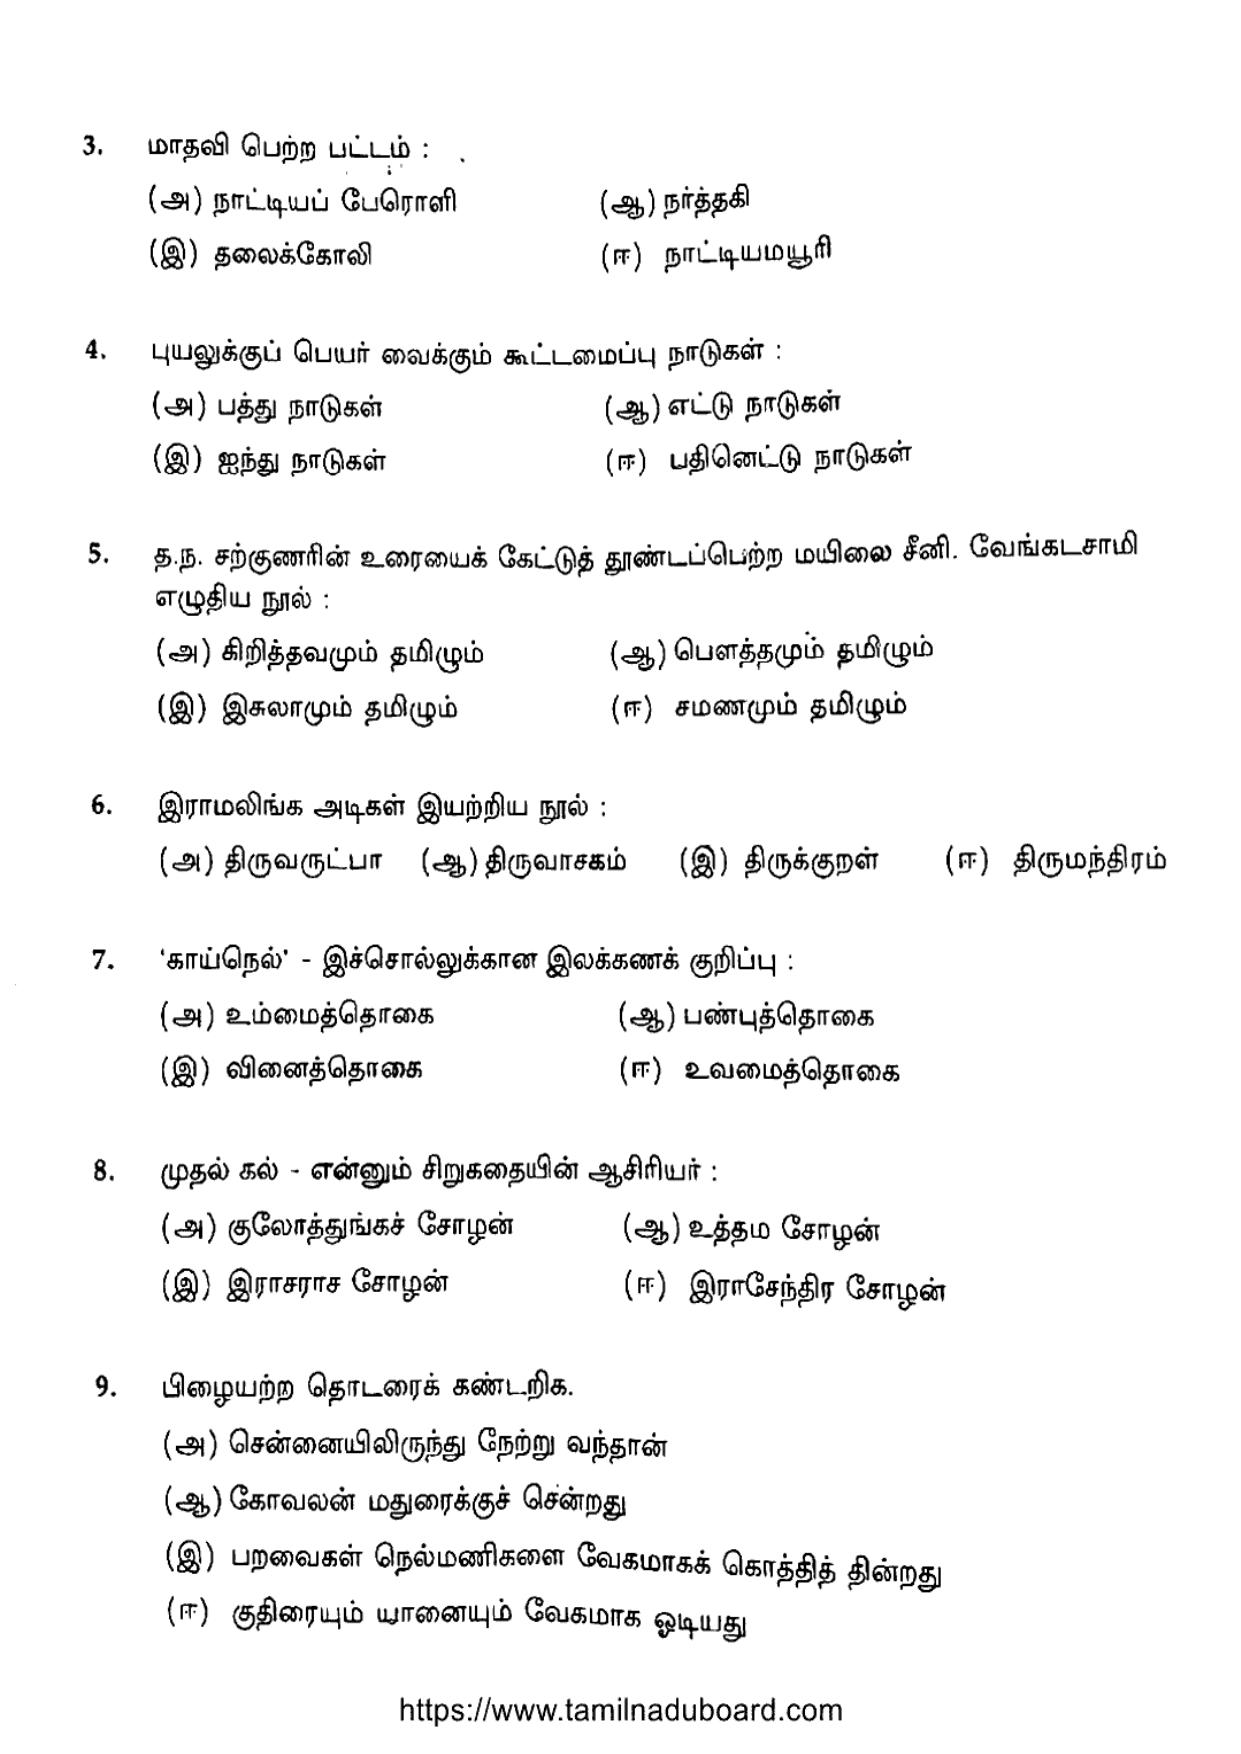 3. மாதவி பெற்ற பட்டம் :
(அ) நாட்டியப் பேரொளி (ஆ) நர்த்தகி
(இ) தலைக்கோலி (ஈ) நாட்டியமயூரி
4. புயலுக்குப் பெயர் வைக்கும் கூட்டமைப்பு நாடுகள் :
(அ) பத்து நாடுகள் (ஆ) எட்டு நாடுகள்
(இ) ஐந்து நாடுகள் (ஈ) பதினெட்டு நாடுகள்
5. த.ந. சற்குணரின் உரையைக் கேட்டுத் தூண்டப்பெற்ற மயிலை சீனி. வேங்கடசாமி
எழுதிய நூல் :
(அ) கிறித்தவமும் தமிழும் (ஆ) பௌத்தமும் தமிழும்
(இ) இசுலாமும் தமிழும் (ஈ) சமணமும் தமிழும்
6. இராமலிங்க அடிகள் இயற்றிய நூல் :
(அ) திருவருட்பா (ஆ) திருவாசகம் (இ) திருக்குறள் (ஈ) திருமந்திரம்
7. 'காய்நெல்' - இச்சொல்லுக்கான இலக்கணக் குறிப்பு :
(அ) உம்மைத்தொகை (ஆ) பண்புத்தொகை
(இ) வினைத்தொகை (ஈ) உவமைத்தொகை
8. முதல் கல் - என்னும் சிறுகதையின் ஆசிரியர் :
(அ) குலோத்துங்கச் சோழன் (ஆ) உத்தம சோழன்
(இ) இராசராச சோழன் (ஈ) இராசேந்திர சோழன்
9. பிழையற்ற தொடரைக் கண்டறிக.
(அ) சென்னையிலிருந்து நேற்று வந்தான்
(ஆ) கோவலன் மதுரைக்குச் சென்றது
(இ) பறவைகள் நெல்மணிகளை வேகமாகக் கொத்தித் தின்றது
(ஈ) குதிரையும் யானையும் வேகமாக ஓடியது
https://www.tamilnaduboard.com